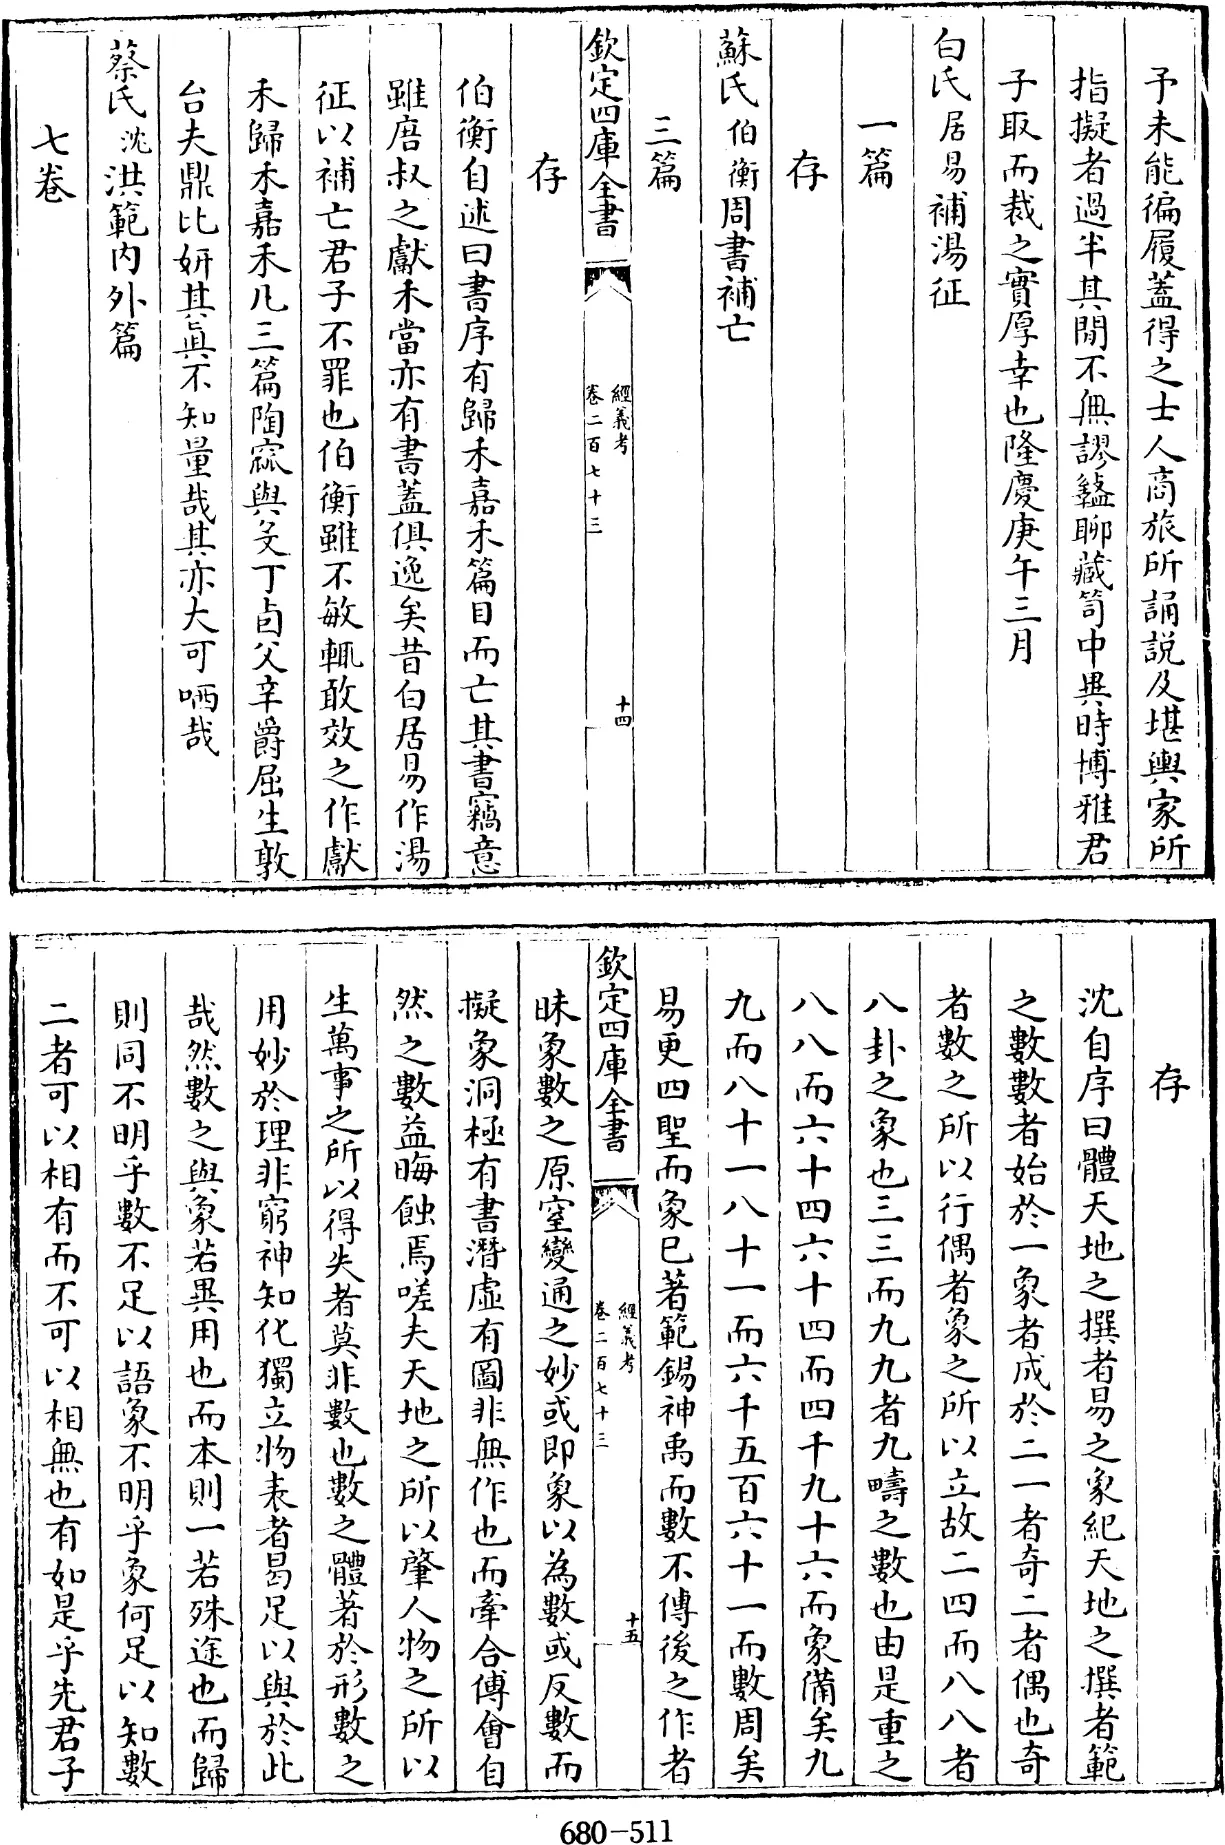 予未能徧履蓋得之士人商旅所誦説及堪輿家所
指擬者過半其間不無謬盭聊藏笥中異時博雅君
子取而裁之實厚幸也隆慶庚午三月
白氏居易補湯征
一篇
存
蘇氏伯衡周書補亡
三篇
欽定四庫全書
經義考
卷二百七十三
十四
存
伯衡自述曰書序有歸禾嘉禾篇目而亡其書竊意
雖唐叔之獻禾當亦有書蓋俱逸矣昔白居易作湯
征以補亡君子不罪也伯衡雖不敏輒敢效之作獻
禾歸禾嘉禾凡三篇陶窳與㕛丁卣父辛爵屈生敦
台夫鼎比妍其眞不知量哉其亦大可哂哉
蔡氏沈洪範内外篇
七卷
存
沈自序曰體天地之撰者易之象紀天地之撰者範
之數數者始於一象者成於二一者奇二者偶也奇
者數之所以行偶者象之所以立故二四而八八者
八卦之象也三三而九九者九疇之數也由是重之
八八而六十四六十四而四千九十六而象備矣九
九而八十一八十一而六千五百六十一而數周矣
易更四聖而象已著範錫神禹而數不傳後之作者
欽定四庫全書
經義考
卷二百七十三
十五
昧象數之原窒變通之妙或即象以為數或反數而
擬象洞極有書潛虛有圖非無作也而牽合傅會自
然之數益晦蝕焉嗟夫天地之所以肇人物之所以
生萬事之所以得失者莫非數也數之體著於形數之
用妙於理非窮神知化獨立物表者曷足以與於此
哉然數之與象若異用也而本則一若殊途也而歸
則同不明乎數不足以語象不明乎象何足以知數
二者可以相有而不可以相無也有如是乎先君子
680-511